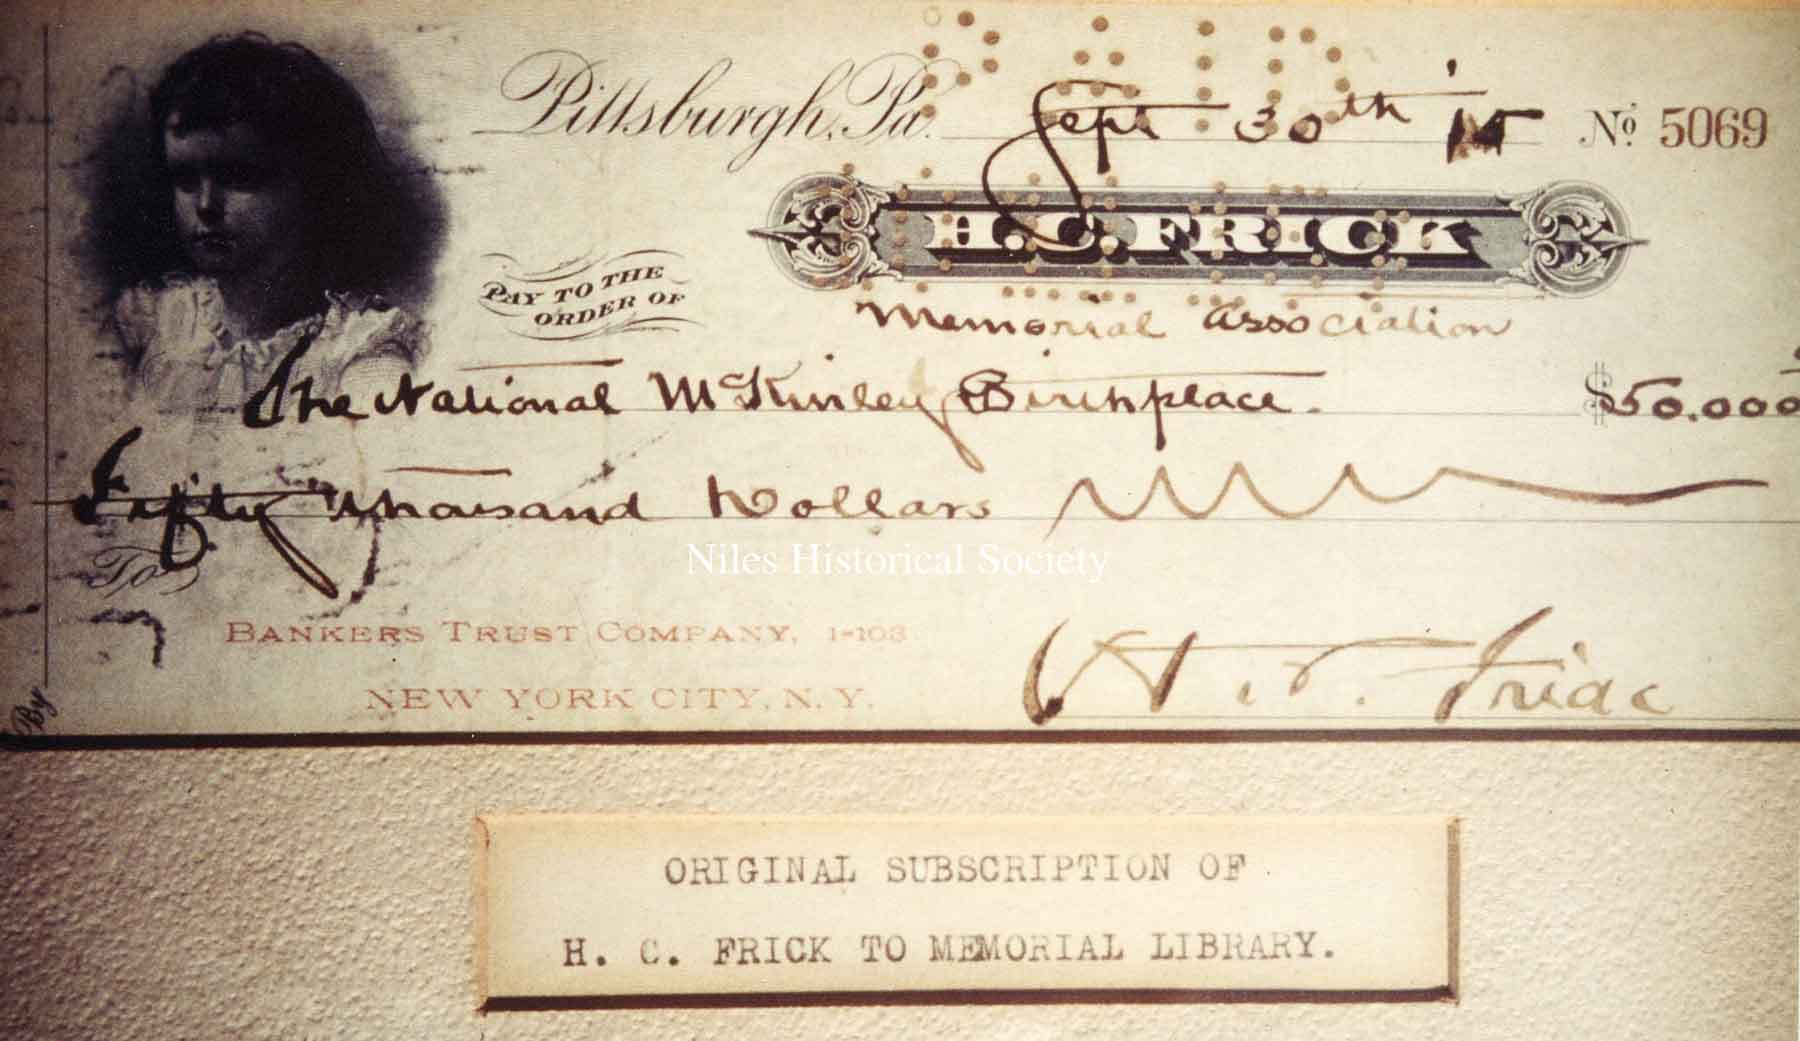 PAID
Pittsburgh, Pa. Sept 30th '15 No. 5069
H.C. FRICK
PAY TO THE
ORDER OF
Memorial Association
The National McKinley Birthplace. $50.000
Fifty Thousand Dollars
Niles Historical Society
To
BANKERS TRUST COMPANY, 1-103
NEW YORK CITY, N.Y.
H. C. Frick
By
ORIGINAL SUBSCRIPTION OF
H. C. FRICK TO MEMORIAL LIBRARY.